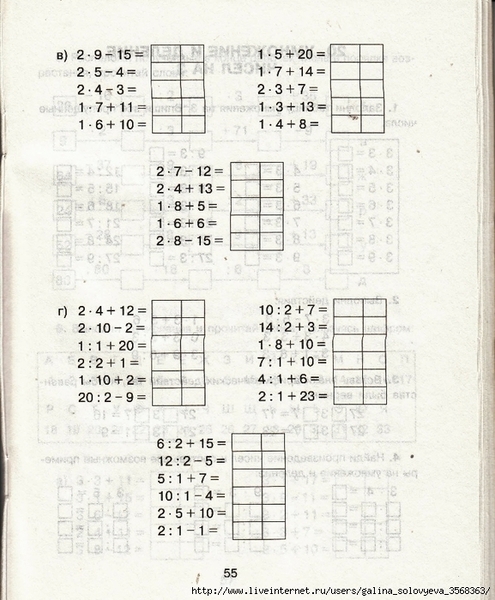 в) 2 · 9 – 15 =
2 · 5 – 4 =
2 · 4 – 3 =
1 · 7 + 11 =
1 · 6 + 10 =
1 · 5 + 20 =
1 · 7 + 14 =
2 · 3 + 7 =
1 · 3 + 13 =
1 · 4 + 8 =
2 · 7 – 12 =
2 · 4 + 13 =
1 · 8 + 5 =
1 · 6 + 6 =
2 · 8 – 15 =
г) 2 · 4 + 12 =
2 · 10 – 2 =
1 : 1 + 20 =
2 : 2 + 1 =
1 · 10 + 2 =
20 : 2 – 9 =
10 : 2 + 7 =
14 : 2 + 3 =
1 · 8 + 10 =
7 : 1 + 10 =
4 : 1 + 6 =
2 : 1 + 23 =
6 : 2 + 15 =
12 : 2 – 5 =
5 : 1 + 7 =
10 : 1 – 4 =
2 · 5 + 10 =
2 : 1 – 1 =
55
http://www.liveinternet.ru/users/galina_solovyeva_3568363/